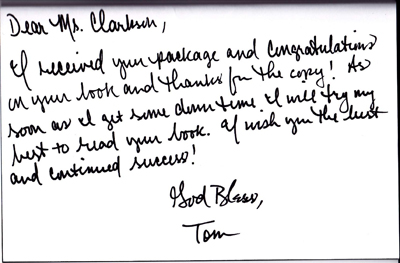 Dear Mr. Clarkson,
I received your package and congratulations
on your book and thanks for the copy! As
soon as I get some down time I will try my
best to read your book. I wish you the best
and continued success!
God Bless,
Tom